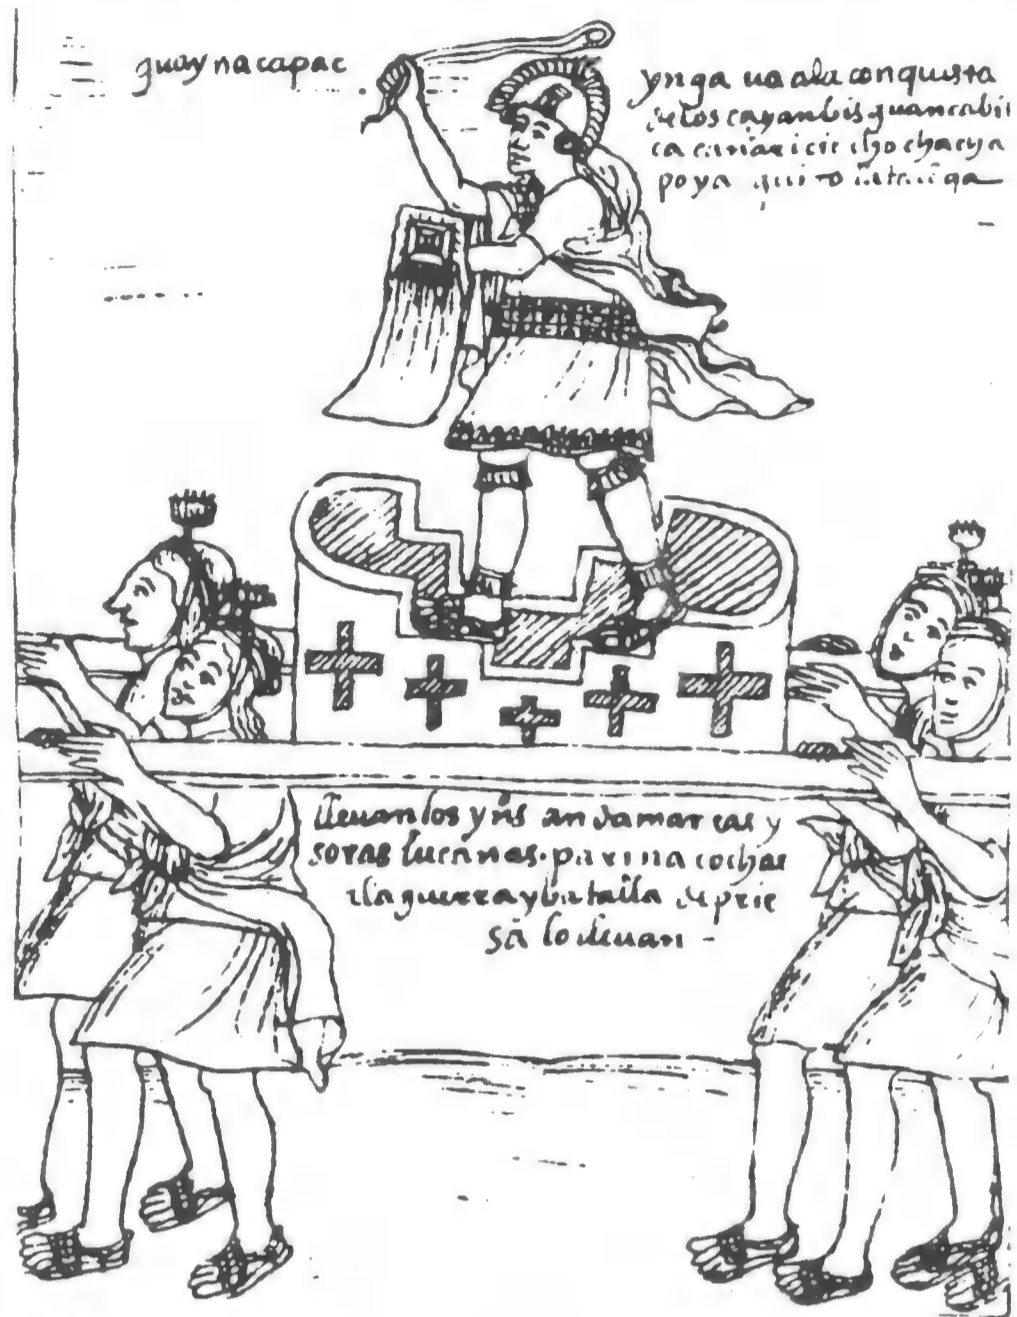 guaynacapac
ynga ua ala conquista
delos cayanbis guancabil
ca cañari cicho chacha
poya quito
lleuan los yns andamarcas y
soras lucanas parinacochas
ala guerra y batalla de prie
sa lo lleuan -